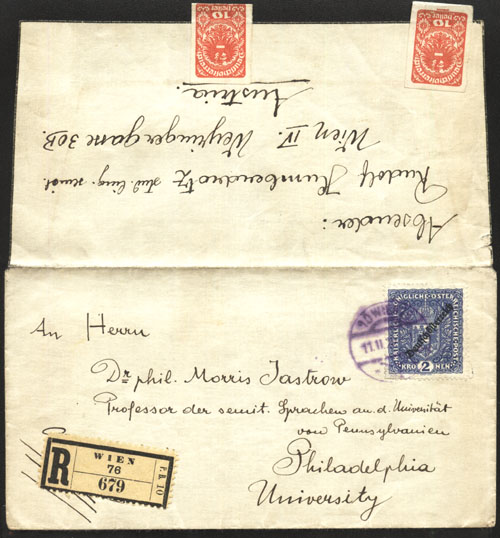 10
10
Absender:
Rudolf stud. ling. semit.
Wien IV. Weyringergasse 30B.
Austria.
WIEN
11.II.
KAISERLICHE KÖNIGLICHE ÖSTERREICHISCHE POST
Deutschösterreich
KRO 2 NEN
An Herrn
Dr phil. Morris Jastrow
Professor der semit. Sprachen an. d. Universität
von Pennsylvanien
Philadelphia
University
R
WIEN
76
679